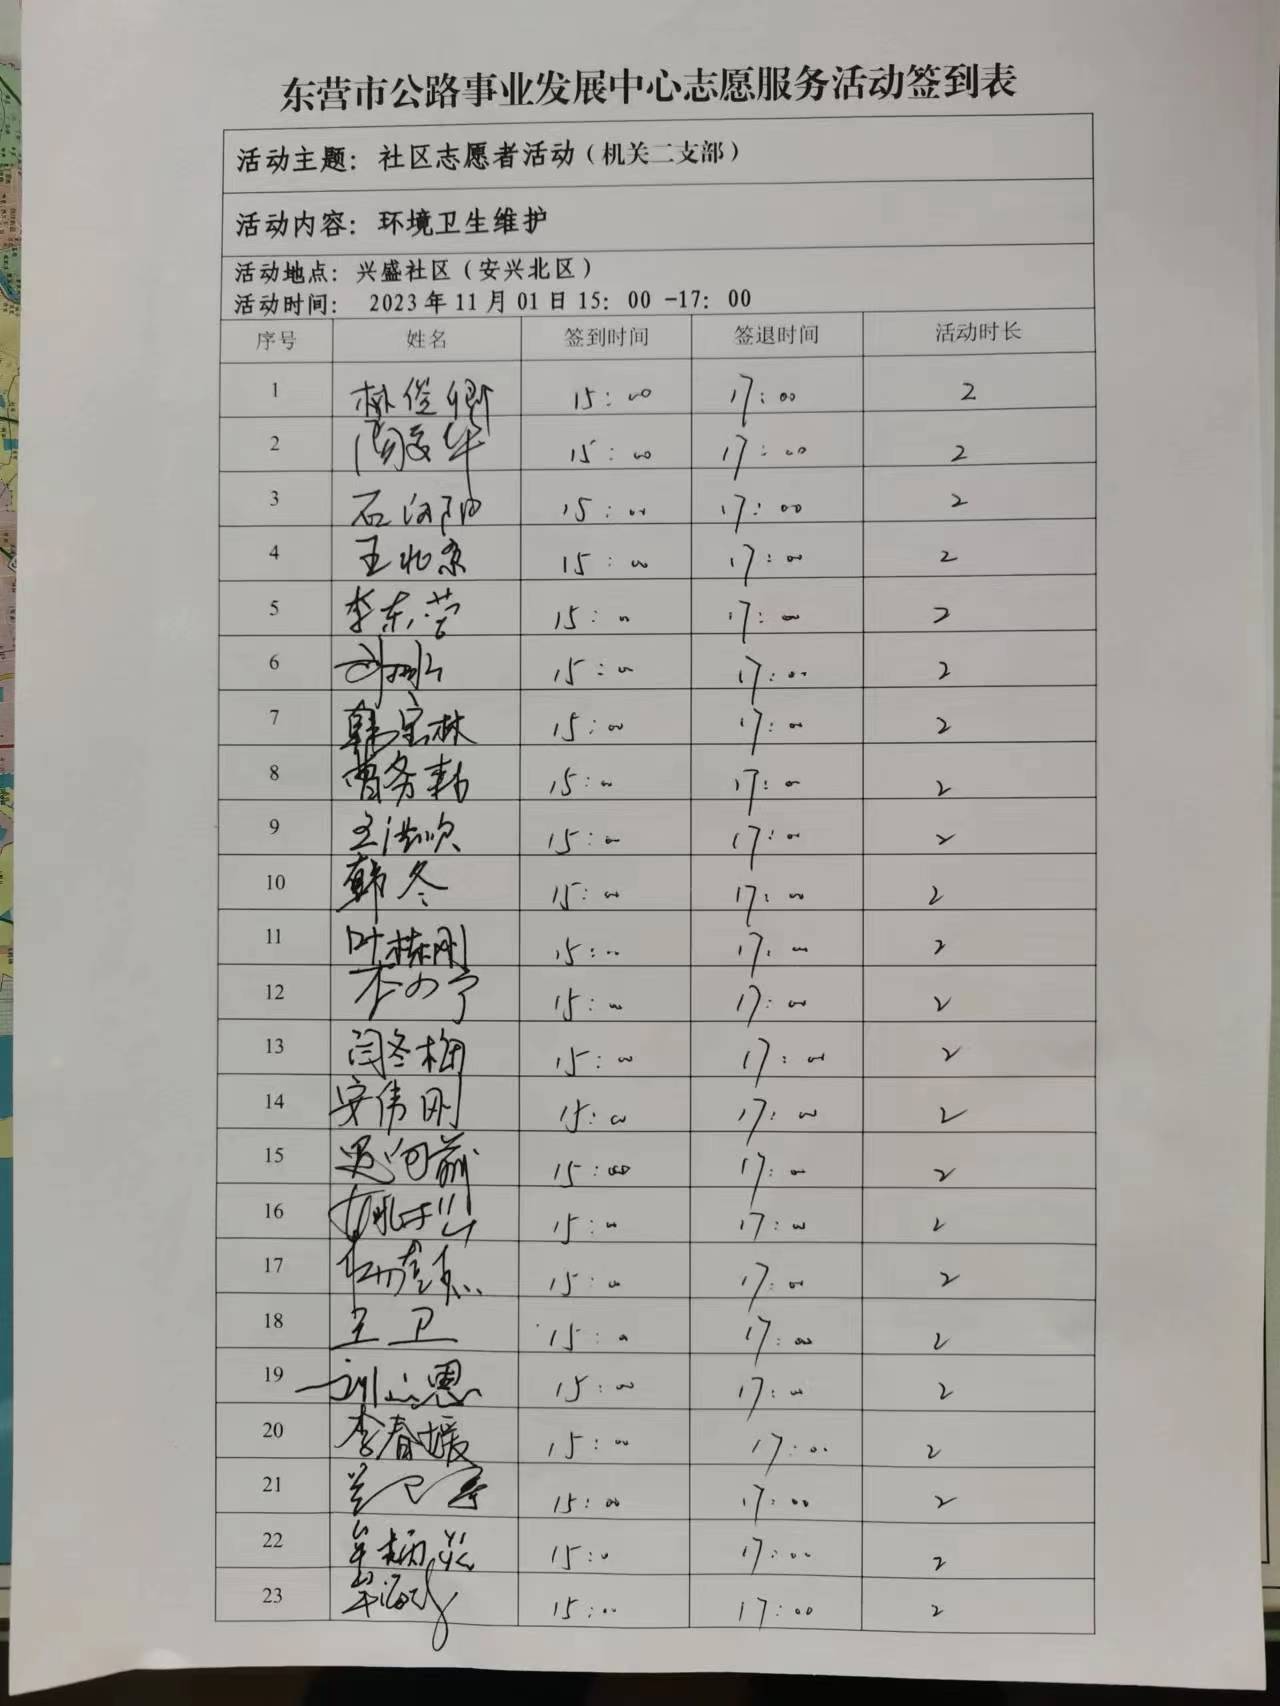 东营市公路事业发展中心志愿服务活动签到表
活动主题：社区志愿者活动（机关二支部）
活动内容：环境卫生维护
活动地点：兴盛社区（安兴北区）
活动时间： 2023年11月01日15：00 -17：00
序号 姓名 签到时间 签退时间 活动时长
1 林俊卿 15:00 17:00 2
2 15:00 17:00 2
3 石向阳 15:00 17:00 2
4 王北京 15:00 17:00 2
5 李东营 15:00 17:00 2
6 15:00 17:00 2
7 韩宝林 15:00 17:00 2
8 曹务勤 15:00 17:00 2
9 15:00 17:00 2
10 韩冬 15:00 17:00 2
11 叶栋刚 15:00 17:00 2
12 15:00 17:00 2
13 闫冬梅 15:00 17:00 2
14 安伟刚 15:00 17:00 2
15 15:00 17:00 2
16 15:00 17:00 2
17 15:00 17:00 2
18 王卫 15:00 17:00 2
19 15:00 17:00 2
20 李春媛 15:00 17:00 2
21 15:00 17:00 2
22 15:00 17:00 2
23 15:00 17:00 2